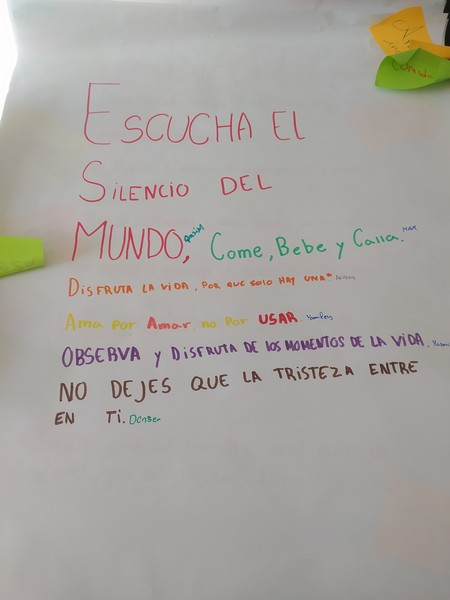 ESCUCHA EL
SILENCIO DEL
MUNDO, Come, Bebe y Calla.
DISFRUTA LA VIDA, POR QUE SOLO HAY UNA"
Ama Por Amar no Por USAR.
OBSERVA y DISFRUTA DE LOS MOMENTOS DE LA VIDA.
NO DEJES QUE LA TRISTEZA ENTRE
EN TI. Denser